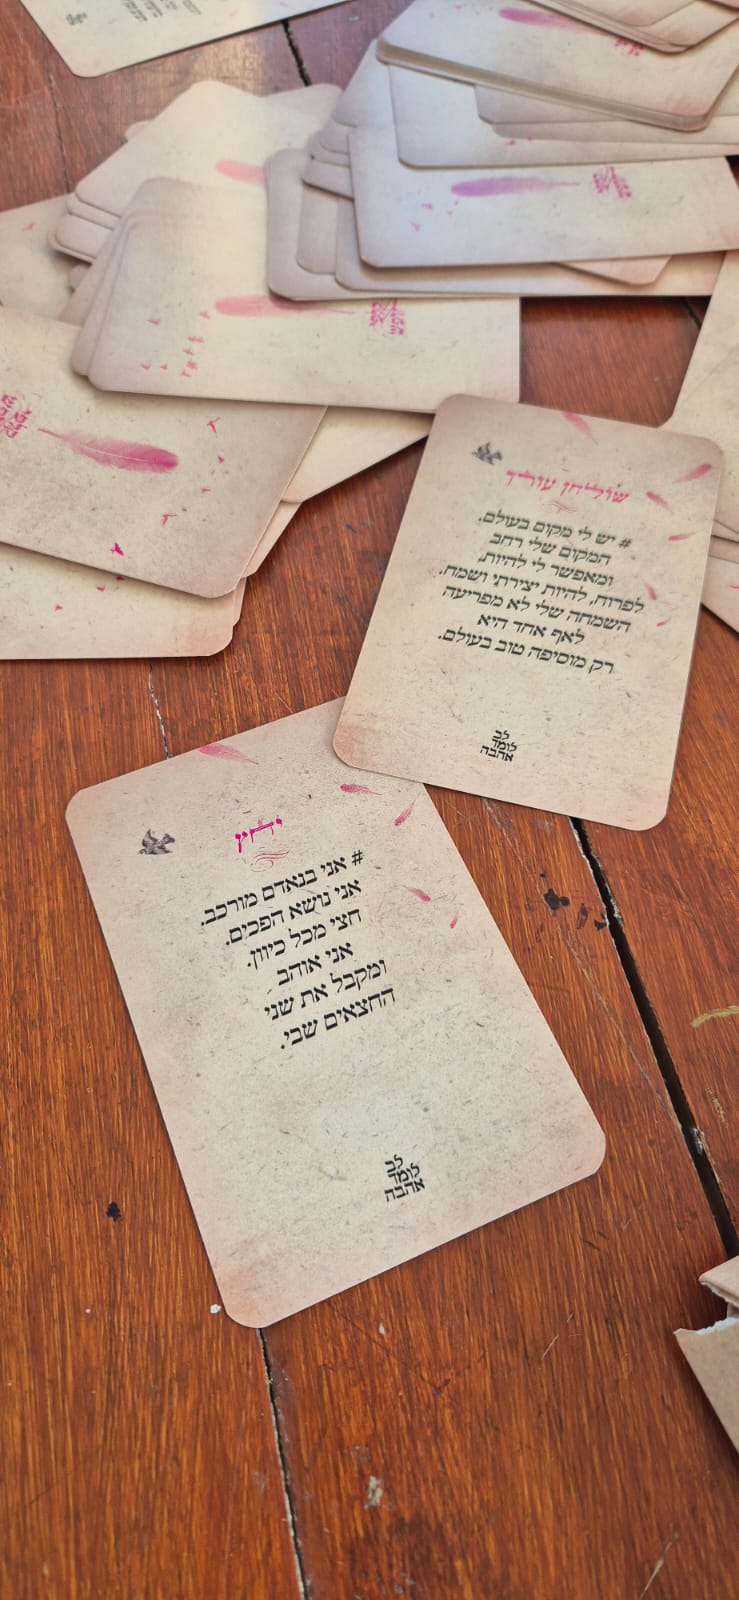 שולחן עורך
# יש לי מקום בעולם,
המקום שלי רחב
ומאפשר לי להיות,
לפרוח, להיות יצירתי ושמח.
השמחה שלי לא מפריעה
לאף אחד היא
רק מוסיפה טוב בעולם.
לב
לומד
אהבה
יחץ
# אני בנאדם מורכב.
אני נושא הפכים.
חצי מכל כיוון.
אני אוהב
ומקבל את שני
החצאים שבי.
לב
לומד
אהבה